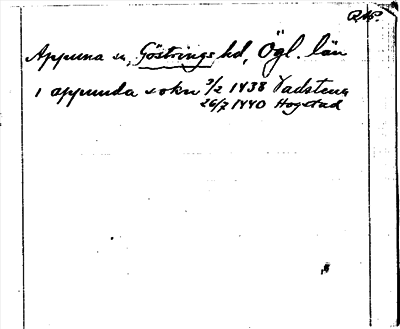 RAP.
Appuna sn, Göstrings hd, Ögl. län
i appunda sokn 3/2 1438 Vadstena
26/7 1440 Hogstad